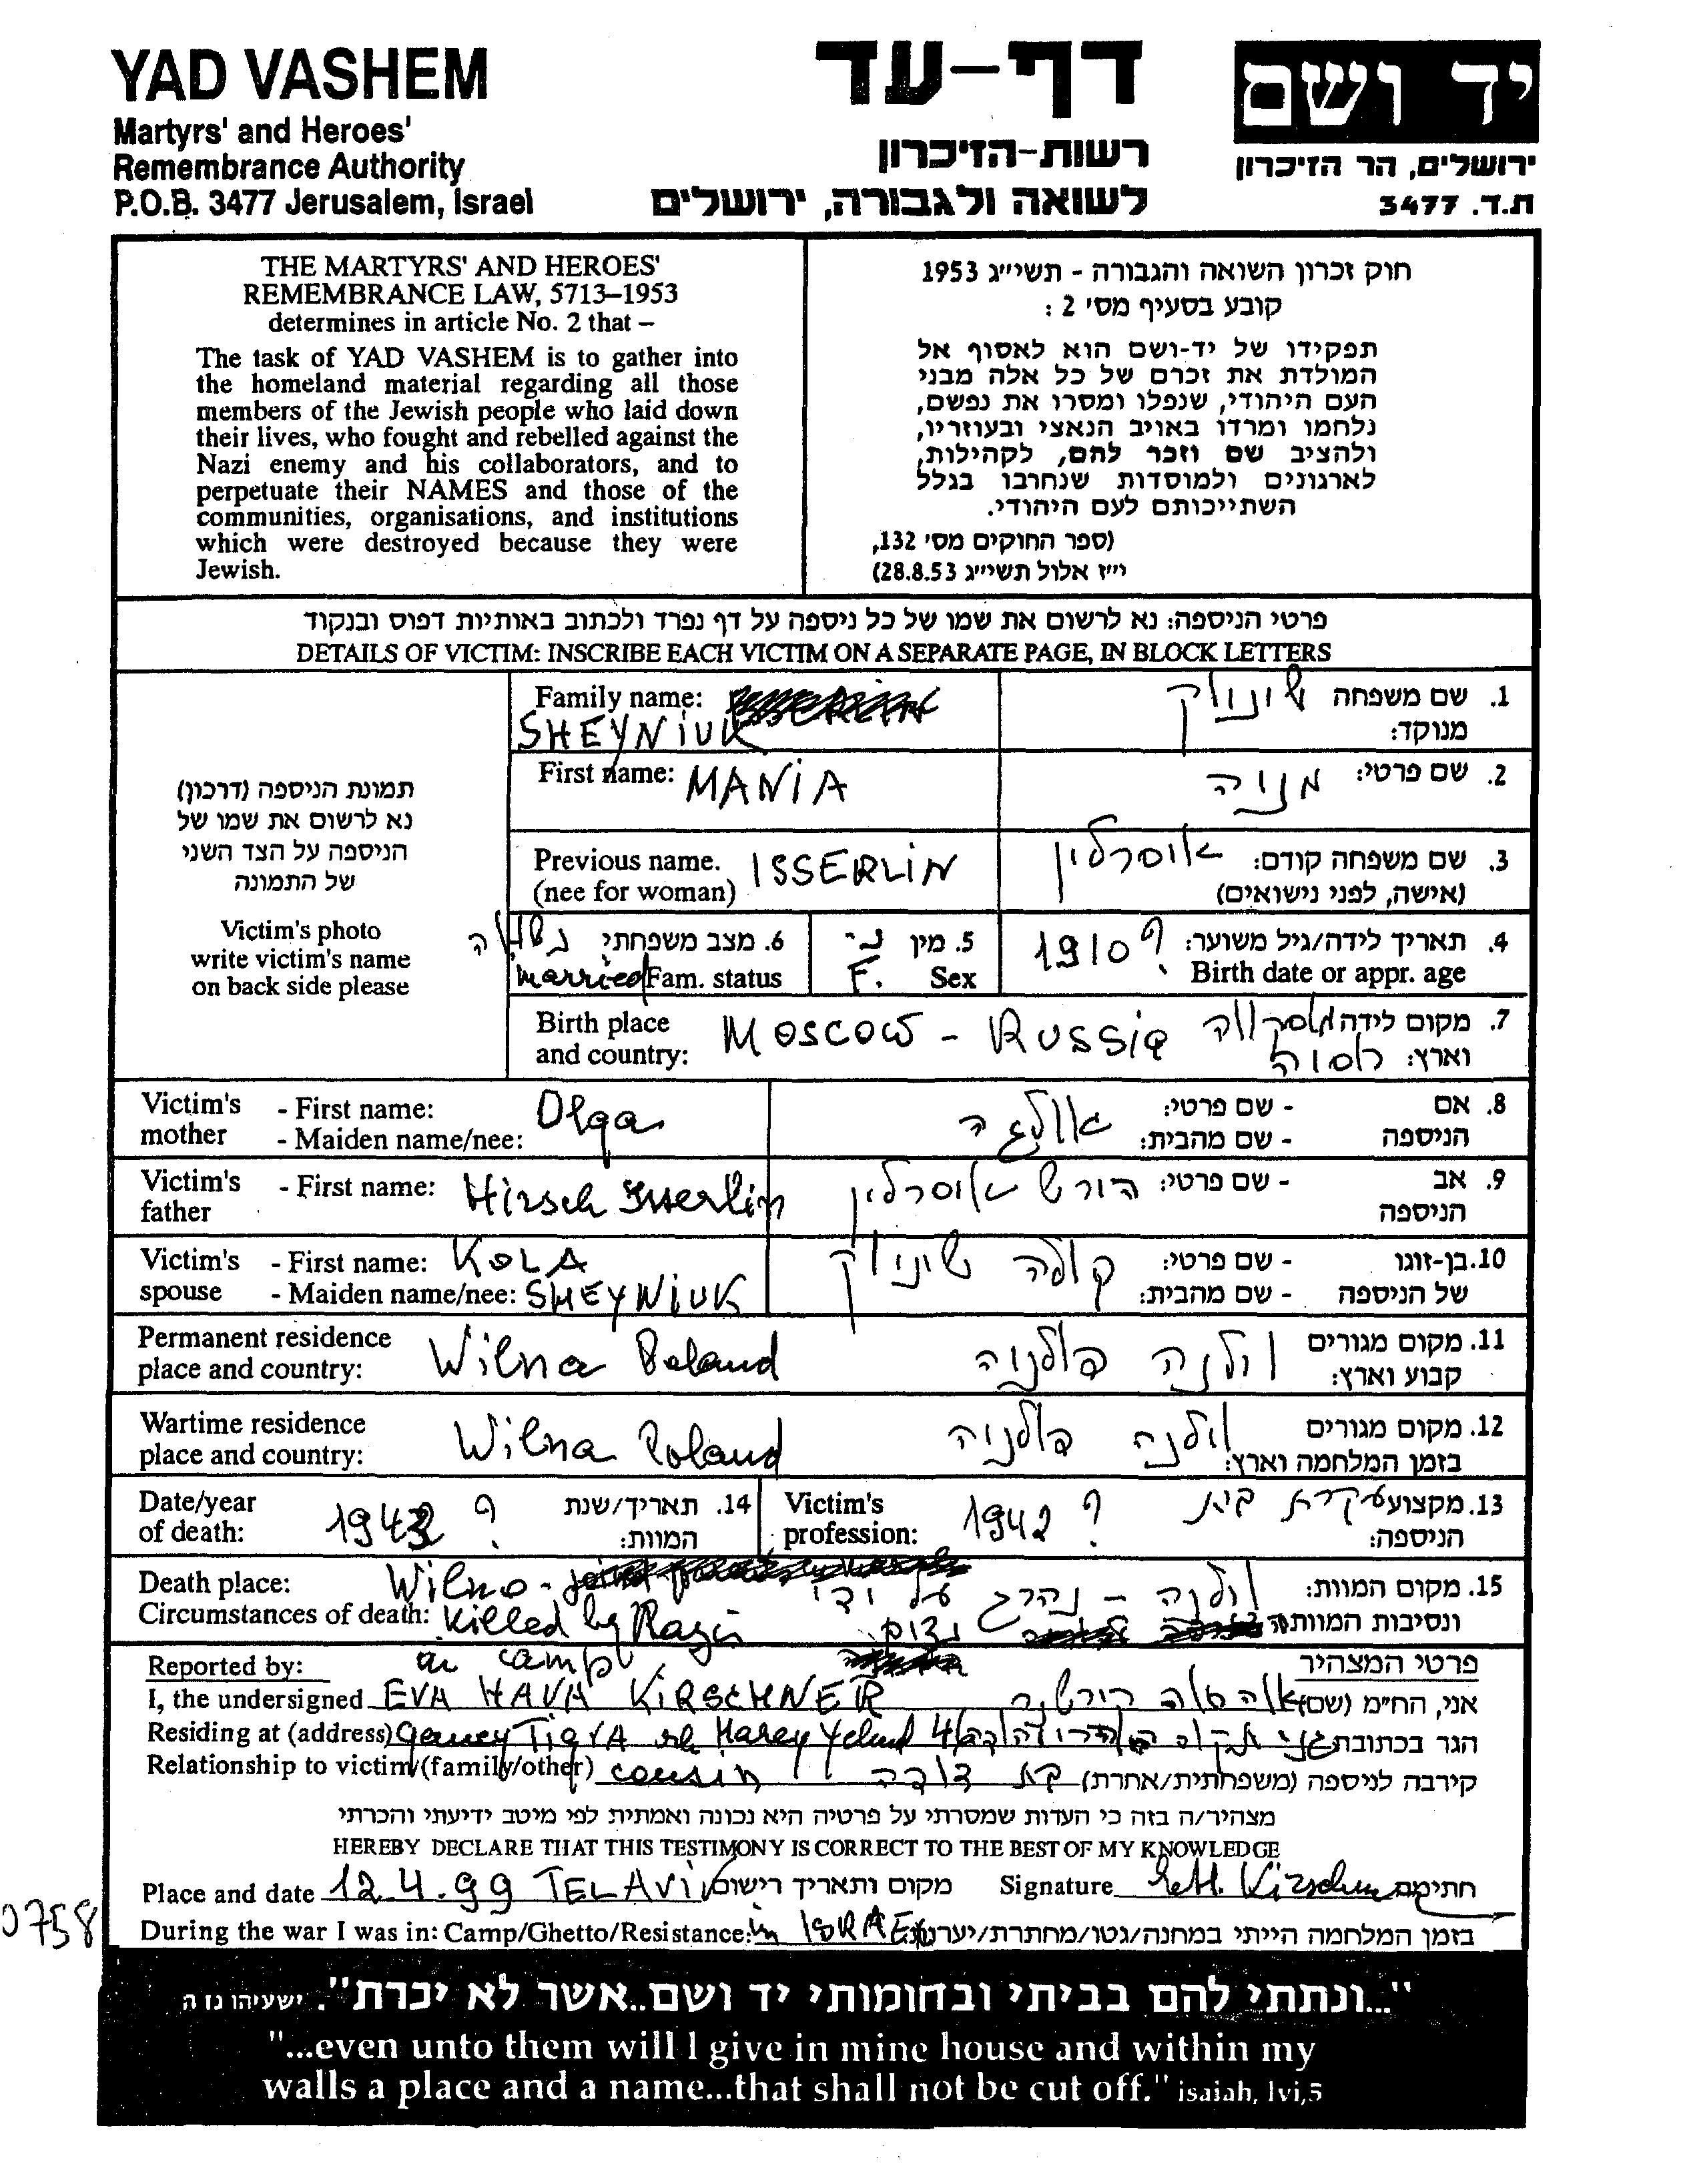 YAD VASHEM
Martyrs' and Heroes'
Remembrance Authority
P.O.B. 3477 Jerusalem, Israel
דף-עד
רשות-הזיכרון
לשואה ולגבורה, ירושלים
יד ושם
ירושלים, הר הזיכרון
ת.ד. 3477
THE MARTYRS' AND HEROES'
REMEMBRANCE LAW, 5713–1953
determines in article No. 2 that –
The task of YAD VASHEM is to gather into
the homeland material regarding all those
members of the Jewish people who laid down
their lives, who fought and rebelled against the
Nazi enemy and his collaborators, and to
perpetuate their NAMES and those of the
communities, organisations, and institutions
which were destroyed because they were
Jewish.
חוק זכרון השואה והגבורה - תשי״ג 1953
קובע בסעיף מס׳ 2 :
תפקידו של יד-ושם הוא לאסוף אל
המולדת את זכרם של כל אלה מבני
העם היהודי, שנפלו ומסרו את נפשם,
נלחמו ומרדו באויב הנאצי ובעוזריו,
ולהציב שם וזכר להם, לקהילות,
לארגונים ולמוסדות שנחרבו בגלל
השתייכותם לעם היהודי.
(ספר החוקים מס׳ 132,
י״ז אלול תשי״ג 28.8.53)
פרטי הניספה: נא לרשום את שמו של כל ניספה על דף נפרד ולכתוב באותיות דפוס ובנקוד
DETAILS OF VICTIM: INSCRIBE EACH VICTIM ON A SEPARATE PAGE, IN BLOCK LETTERS
תמונת הניספה (דרכון)
נא לרשום את שמו של
הניספה על הצד השני
של התמונה
Victim's photo
write victim's name
on back side please
Family name:
SHEYNIUK
1. שם משפחה שינוק
מנוקד:
First name: MANIA
2. שם פרטי: מניה
Previous name. ISSERLIN
(nee for woman)
3. שם משפחה קודם: איסרלין
(אישה, לפני נישואים)
4. תאריך לידה/גיל משוער: 1910 ?
Birth date or appr. age
5. מין נ.
F. Sex
6. מצב משפחתי נשואה
married Fam. status
Birth place
and country: MOSCOW - RUSSIA
7. מקום לידה מוסקווה
וארץ: רוסיה
Victim's mother - First name: Olga
- Maiden name/nee:
8. אם הניספה - שם פרטי: אולגה
- שם מהבית:
Victim's father - First name: Hirsch Isserlin
9. אב הניספה - שם פרטי: הירש איסרלין
Victim's spouse - First name: KOLA
- Maiden name/nee: SHEYNIUK
10. בן-זוגו של הניספה - שם פרטי: קולה שיניוק
- שם מהבית:
Permanent residence
place and country: Wilna Poland
11. מקום מגורים וילנה פולניה
קבוע וארץ:
Wartime residence
place and country: Wilna Poland
12. מקום מגורים וילנה פולניה
בזמן המלחמה וארץ:
Date/year
of death: 1943 ?
14. תאריך/שנת
המוות:
Victim's
profession: 1942 ?
13. מקצוע עקרת בית
הניספה:
Death place: Wilno -
Circumstances of death: killed by Nazis
in camp
15. מקום המוות: וילנה - נהרג על ידי
ונסיבות המוות: נצים
Reported by:
פרטי המצהיר
I, the undersigned EVA HAVA KIRSCHNER
אני, הח״מ (שם) אוה חוה קירשנר
Residing at (address) Ganey Tiqva
הגר בכתובת גני תקוה
Relationship to victim (family/other) cousin
קירבה לניספה (משפחתית/אחרת) בת דודה
מצהיר/ה בזה כי העדות שמסרתי על פרטיה היא נכונה ואמתית לפי מיטב ידיעתי והכרתי
HEREBY DECLARE THAT THIS TESTIMONY IS CORRECT TO THE BEST OF MY KNOWLEDGE
Place and date 12.4.99 TEL AVIV מקום ותאריך רישום
Signature חתימת
0758
During the war I was in: Camp/Ghetto/Resistance: in ISRAEL בזמן המלחמה הייתי במחנה/גטו/מחתרת/יערות
"...ונתתי להם בביתי ובחומותי יד ושם..אשר לא יכרת". ישעיהו נו ה
"...even unto them will I give in mine house and within my
walls a place and a name...that shall not be cut off." isaiah, lvi,5